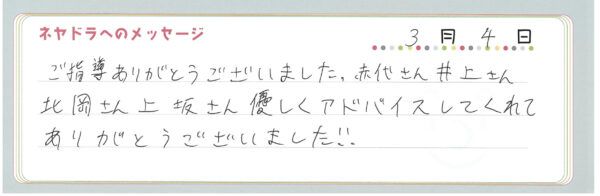 ネヤドラへのメッセージ
3月4日
ご指導ありがとうございました。赤代さん井上さん
北岡さん上坂さん優しくアドバイスしてくれて
ありがとうございました!!